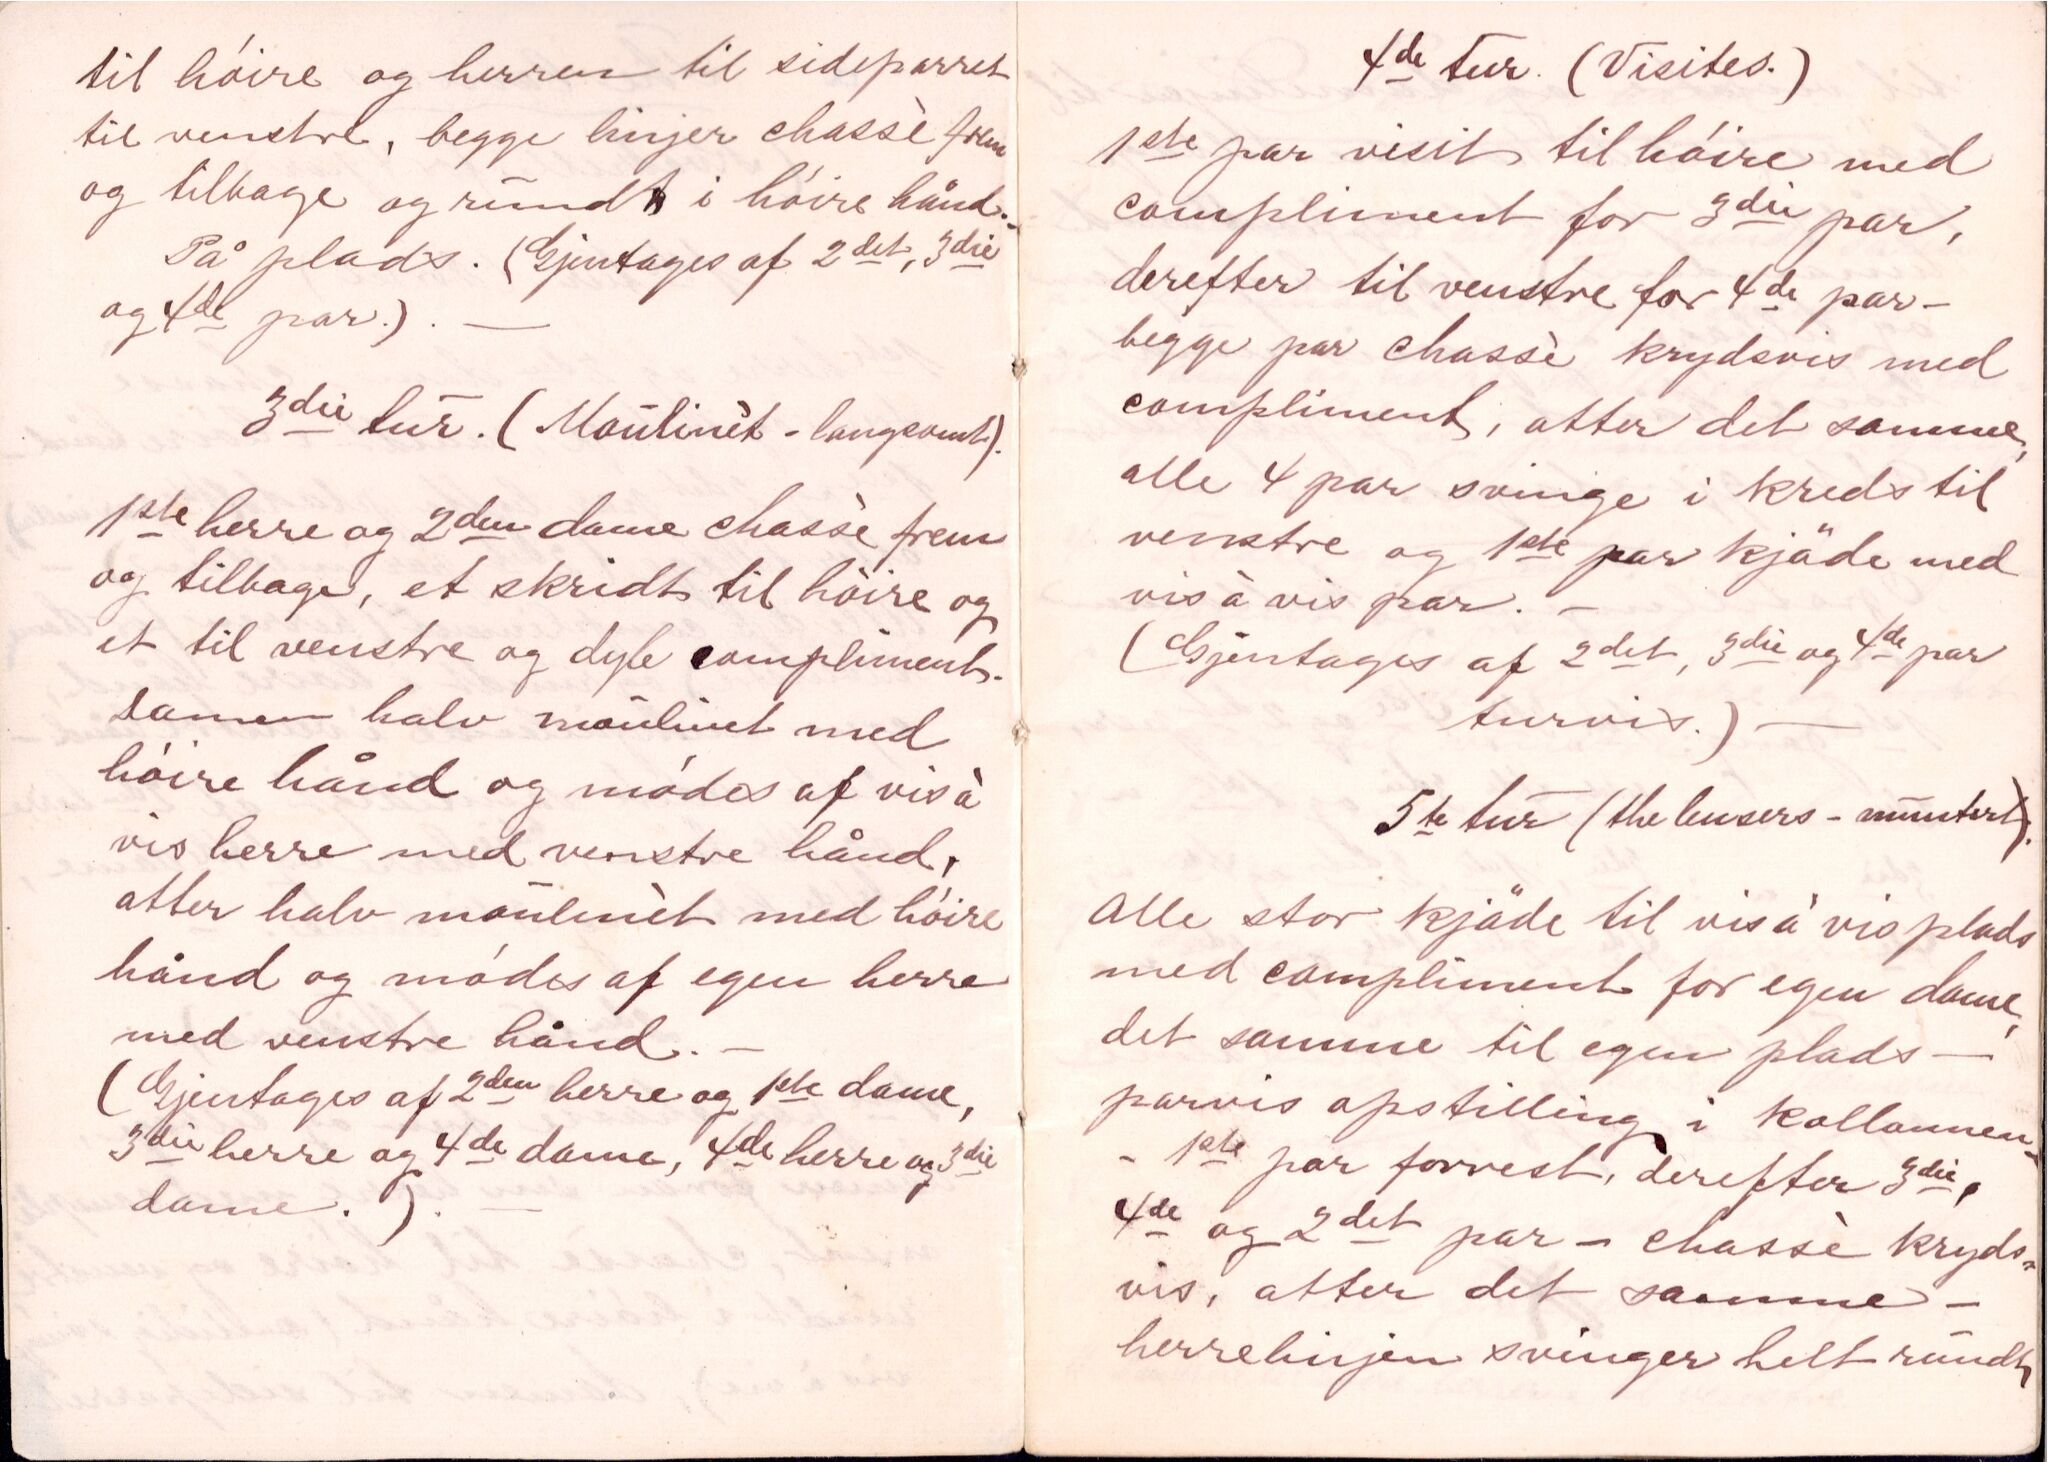 til høire og herren til sideparret
til venstre, begge linjer chassè frem
og tilbage og rundt i høire hånd.-
På plads. (Gjentages af 2det, 3die
og 4de par.). —
3die tur. (Moulinèt - langsomt).
1ste herre og 2den dame chassè frem
og tilbage, et skridt til høire og
et til venstre og dyb compliment.
damen halv moulinet med
høire hånd og mødes af vis à
vis herre med venstre hånd,
atter halv moulinèt med høire
hånd og mødes af egen herre
med venstre hånd. —
(Gjentages af 2den herre og 1ste dame,
3die herre og 4de dame, 4de herre og 3die
dame.). —
4de tur. (Visites.)
1ste par visit til høire med
compliment for 3die par,
derefter til venstre for 4de par -
begge par chassè krydsvis med
compliment, atter det samme,
alle 4 par svinge i kreds til
venstre og 1ste par kjäde med
vis à vis par. —
(Gjentages af 2det, 3die og 4de par
turvis.) —
5te tur (the lensers - muntert).
Alle stor kjäde til vis à vis plads
med compliment for egen dame,
det samme til egen plads —
parvis opstilling i kollonnen -
- 1ste par forrest, derefter 3die,
4de og 2det par - chassè kryds-
vis, atter det samme -
herrelinjen svinger helt rundt